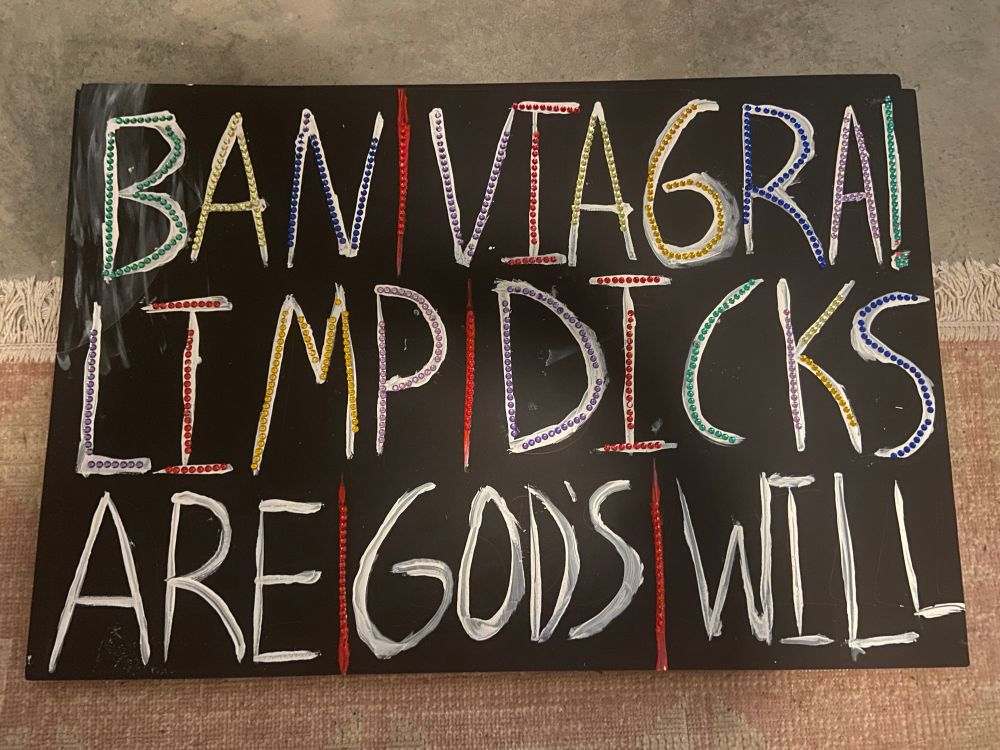 BAN VIAGRA!
LIMP DICKS
ARE GOD'S WILL